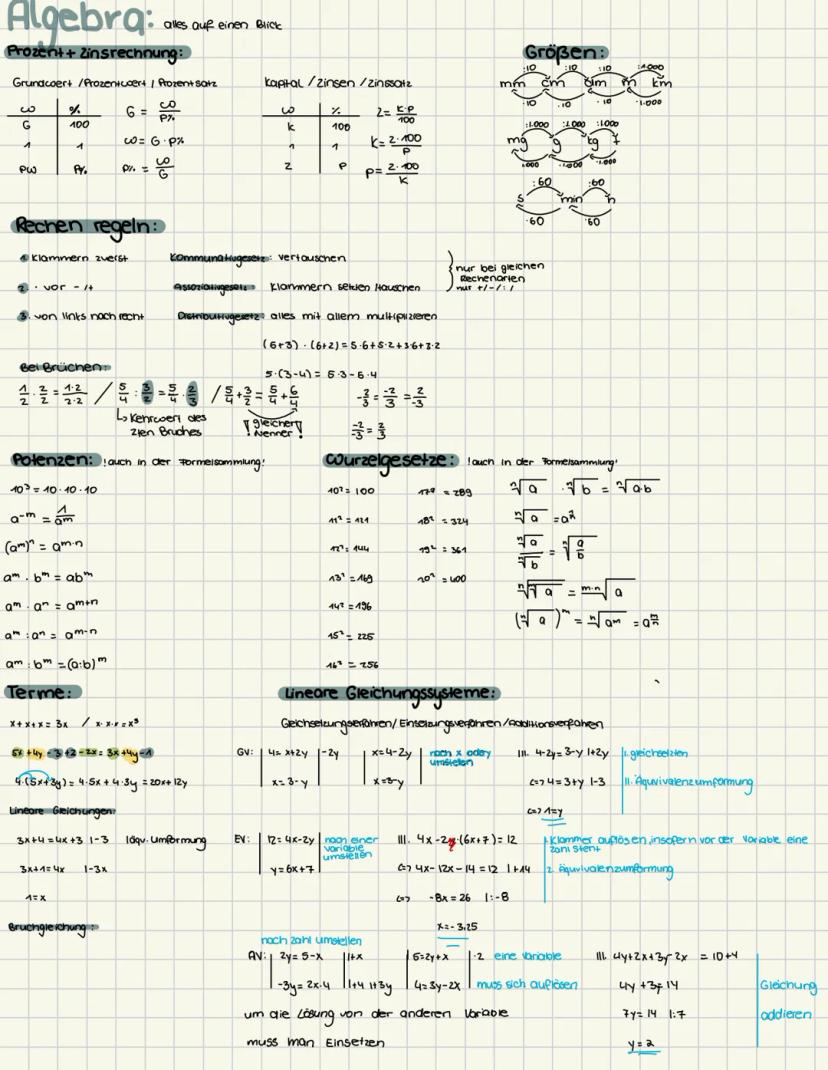 Algebra: alles auf einen Blick
Prozent + Zinsrechnung:
Grundwert / Prozentwert / Prozentsatz
ω | %
G | 100
1 | 1
PW | P%
G = ω/P%
ω = G · P%
P% = ω/G
Kapital / Zinsen / Zinssatz
ω | %
K | 100
1 | 1
Z | P
Z = K·P/100
K = Z·100/P
P = Z·100/K
Größen:
:10 :10 :10 :1.000
mm cm dm m km
·10 ·10 ·10 ·1.000
:1.000 :1.000 :1.000
mg g kg t
·1.000 ·1.000 ·1.000
:60 :60
s min h
·60 ·60
Rechen regeln:
1. Klammern zuerst
2. · vor -/+
3. von links nach recht
Kommunativgesetz: vertauschen
Assoziativgesetz: Klammern setzten / tauschen
Distributivgesetz: alles mit allem multiplizieren
nur bei gleichen
Rechenarten
nur +/-/:/
(5+3) · (6+2) = 5·6+5·2+3·6+3·2
5·(3-4) = 5·3-5·4
Bei Brüchen:
1/2 · 2/2 = 1·2/2·2 / 5/4 : 3/2 = 5/4 · 2/3 / 5/4 + 3/2 = 5/4 + 6/4
Kehrwert des
2ten Bruches
! gleicher Nenner !
-2/3 = -2/3 = 2/-3
-2/-3 = 2/3
Potenzen: !auch in der Formelsammlung!
10³ = 10·10·10
a⁻ᵐ = 1/aᵐ
(aᵐ)ⁿ = aᵐ·ⁿ
aᵐ · bᵐ = abᵐ
aᵐ · aⁿ = aᵐ⁺ⁿ
aᵐ : aⁿ = aᵐ⁻ⁿ
aᵐ : bᵐ = (a:b)ᵐ
Wurzelgesetze: !auch in der Formelsammlung!
10² = 100
11² = 121
12² = 144
13² = 169
14² = 196
15² = 225
16² = 256
17² = 289
18² = 324
19² = 361
20² = 400
ⁿ√a · ⁿ√b = ⁿ√a·b
ⁿ√a / ⁿ√b = ⁿ√a/b
= ᵐ·ⁿ√a
(ⁿ√a)ᵐ = ⁿ√aᵐ = a^m/n
Terme:
x+x+x = 3x / x·x·x = x³
5x+4y-3+2-2x = 3x+4y-1
4·(5x+3y) = 4·5x+4·3y = 20x+12y
Lineare Gleichungen
3x+4 = 4x+3 |-3 |äqv. Umformung
3x+1 = 4x |-3x
1 = x
Bruchgleichung:
Lineare Gleichungssysteme:
Gleichsetzungsverfahren / Einsetzungsverfahren / Additionsverfahren
GV: | 4 = x+2y | -2y
| x = 3-y
| x = 4-2y
| x = 3-y
nach x oder y
umstellen
III. 4-2y = 3-y |+2y
<=> 4 = 3+y |-3
<=> 1 = y
I. gleichsetzten
II. Äquvivalenzumformung
EV: | 12 = 4x-2y
| y = 6x+7
nach einer
variable
umstellen
III. 4x-2·(6x+7) = 12
<=> 4x-12x-14 = 12 |+14
<=> -8x = 26 |:-8
x = -3,25
1. Klammer auflösen, insofern vor der Variable eine
Zahl steht
2. Äquivalenzumformung
nach zahl umstellen
AV: | 2y = 5-x | +x
| -3y = 2x·4 | +4 |+3y
| 5 = 2y+x | ·2
| 4 = 3y-2x
eine Variable
muss sich auflösen
III. 4y+2x+3y-2x = 10+4
4y+3y = 14
7y = 14 |:7
y = 2
Gleichung
addieren
um die Lösung von der anderen Variable
muss man Einsetzen